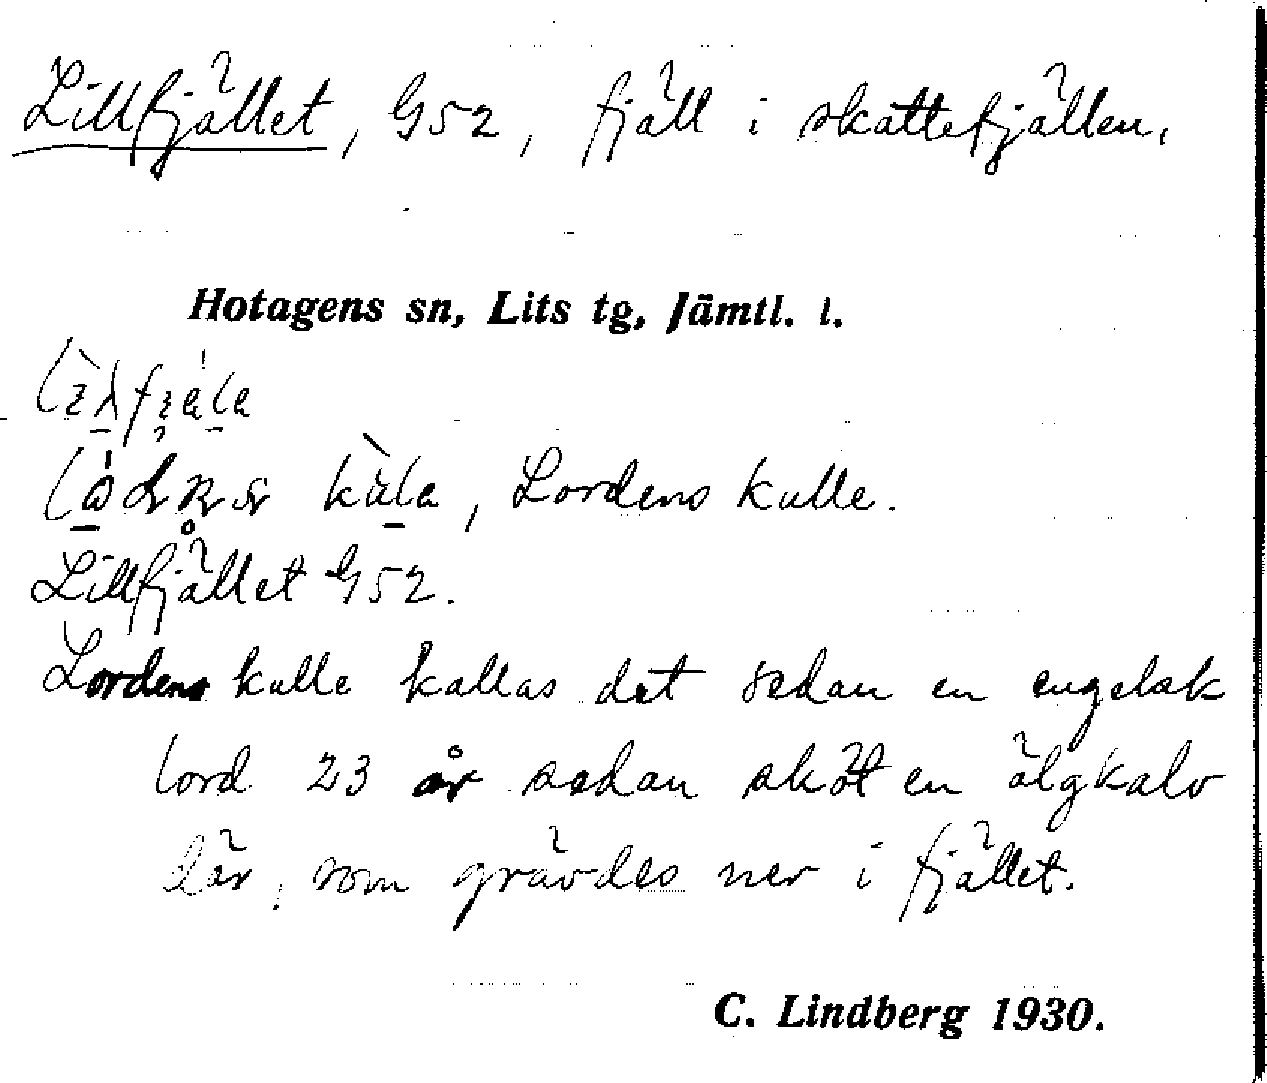 Lillfjället, G52, fjäll i skattefjällen.
Hotagens sn, Lits tg, Jämtl. l.
kùla, Lordens kulle.
Lillfjället G52.
Lordens kulle kallas det sedan en engelsk
lord 23 år sedan sköt en älgkalv
där, som grävdes ner i fjället.
C. Lindberg 1930.